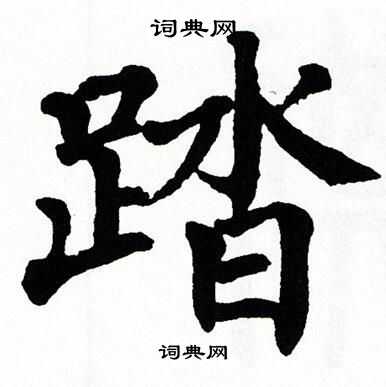 词典网
踏
词典网